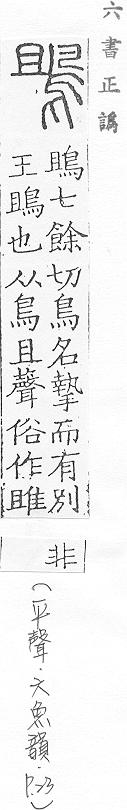 六書正譌
鴡
鴡七餘切鳥名摯而有別
王鴡也从鳥且聲俗作雎
非
(平聲.六魚韻.P.23)